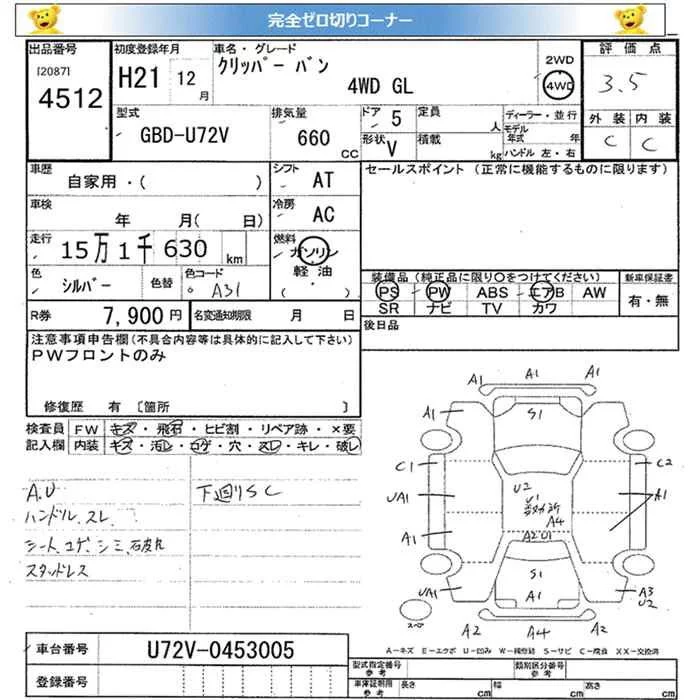 完全ゼロ切りコーナー
出品番号 初度登録年月 車名・グレード 2WD 評価点
[2087] 4512 H21 12月 クリッパー バン 4WD GL 4WD 3.5
型式 排気量 ドア 定員 ディーラー・並行 外装 内装
GBD-U72V 660 CC 5 人 モデル年式 年 C C
形状 V 積載 kg ハンドル 左・右
車歴 シフト セールスポイント (正常に機能するものに限ります)
自家用・( ) AT
車検 年 月( 日) 冷房 AC
走行 15万1千630 km 燃料 ガソリン
軽油
( ・ )
色 シルバー 色替 色コード A31
装備品 (純正品に限り○をつけてください) 新車保証書
PS PW ABS エアB AW 有・無
SR ナビ TV カワ
R券 7,900円 名変通知期限 月 日 後日品
注意事項申告欄(不具合内容等は具体的に記入して下さい)
PWフロントのみ
修復歴 有 [箇所 ]
検査員 FW キズ・飛石・ヒビ割・リペア跡・×要
記入欄 内装 キズ・汚レ・コゲ・穴・スレ・キレ・破レ
A.U 下廻りSC
ハンドル.スレ.
シート.コゲ.シミ.
スタッドレス
A1 A1 A2
A1 S1 A1
C1 C2
UA1 U2 U1 A1
A4
A1 A2U1
S1
UA1 A1 A3 U2
スペア A2 A4 A2
A-キズ E-エクボ U-凹み W-補修跡 S-サビ C-腐食 XX-交換済
車台番号 U72V-0453005
登録番号
型式指定番号 参考 類別区分番号 参考
車庫証明用 参考 長さ cm 幅 cm 高さ cm